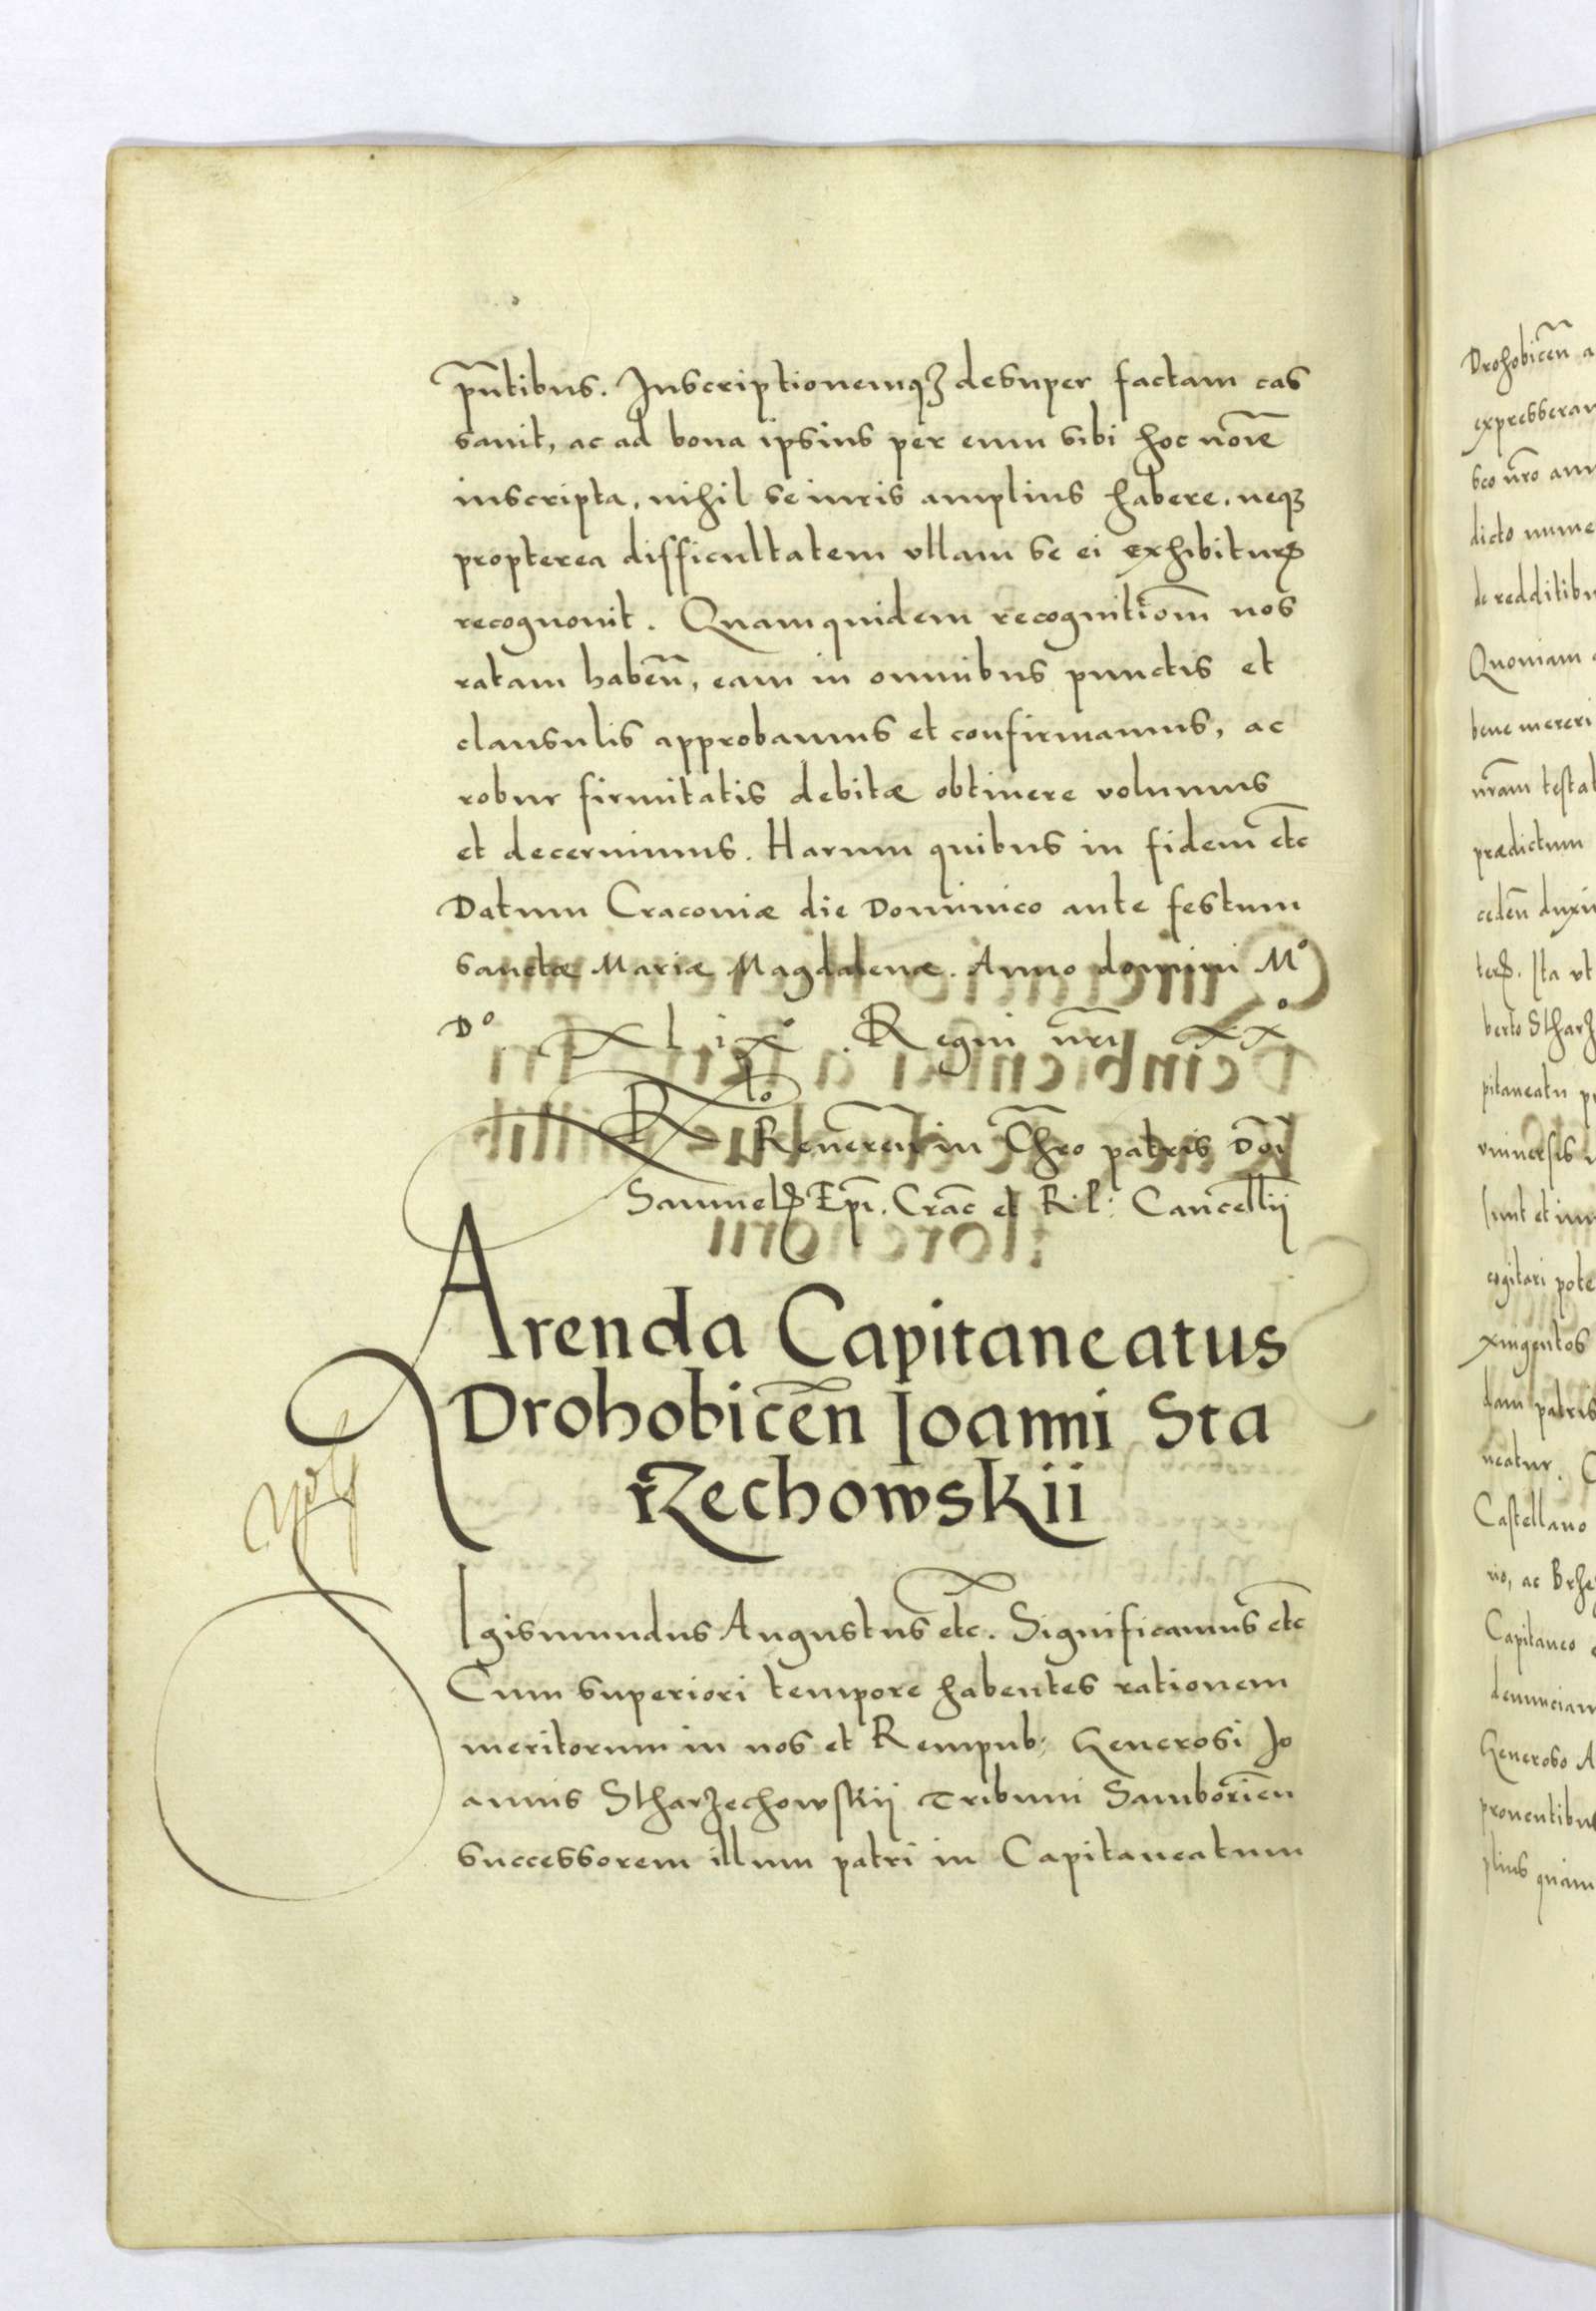 pn̄tibus. Inscriptionemqꝫ desuper factam cas
sauit, ac ad bona ipsius per eum sibi hoc noīe
inscripta, nihil se iuris amplius habere, neqꝫ
propterea difficultatem vllam se ei exhibiturꝝ
recognouit. Quamquidem recognitiom̄ nos
ratam haben̄, eam in omnibus punctis et
clausulis approbamus et confirmamus, ac
robur firmitatis debitæ obtinere volumus
et decernimus. Harum quibus in fidem etc̄
Datum Cracouiæ die Dominico ante festum
sanctæ Mariæ Magdalenæ. Anno domini M°
D°. XLix° . Regni nr̄i xx°
Rlo Reueren̄ in Chr̄o patris Dn̄i
Samuelꝭ Ep̄i. Crac̄ et R. P.: Cancellīi
Arenda Capitaneatus
Drohobicen̄ Ioanni Sta
rzechowskii
Igismundus Augustus etc̄. Significamus etc̄
Cum superiori tempore habentes rationem
meritorum in nos et Rempub: Generosi Jo
annis Stharzechowskii Tribuni Samborien̄
successorem illum patri in Capitaneatum
Drohobicen̄
expresseran
sco nr̄o ann
dicto nume
de redditibu
Quoniam
bene mereri
nr̄am testat
prædictum
ceden̄ duxi
terꝭ. Ita vt
berto Stharz
pitaneatu
vniuersis
sunt et
cogitari pote
xingentos
dam patris
neatur.
Castellano
rio, ac Brze
Capitaneo
denunciam
Generoso A
prouentibus
plius quam